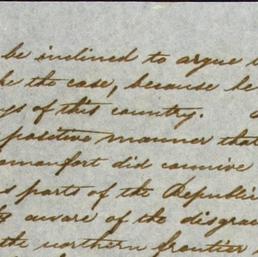 be inclined to argue
the case, because he
of this country.
positive manner that
did connive
parts of the Republic
aware of the disgrac
the northern frontier